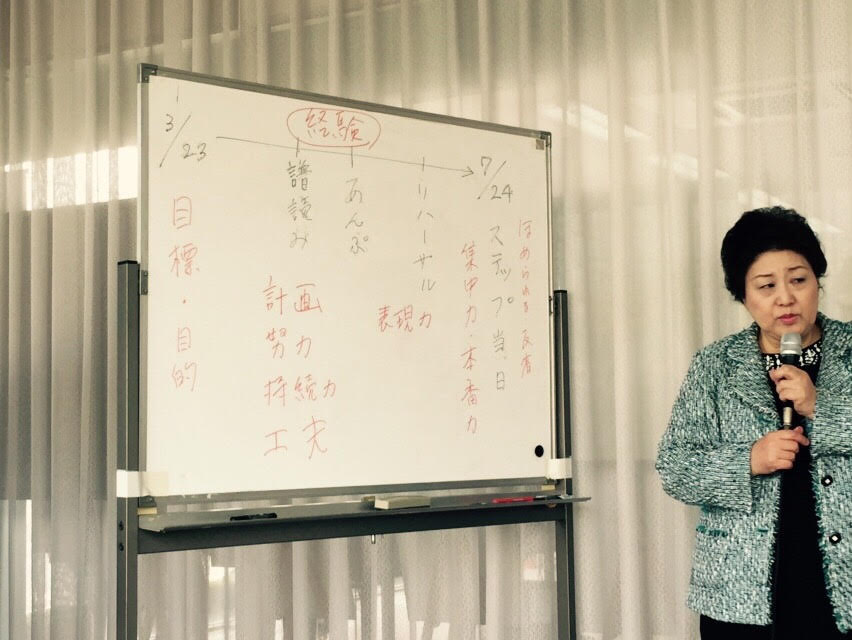 経験
3/23
7/24
目標・目的
譜読み
あんぷ
リハーサル
計画
努力
持続力
工夫
表現力
ステップ当日
集中力・本番力
ほめられる 反省